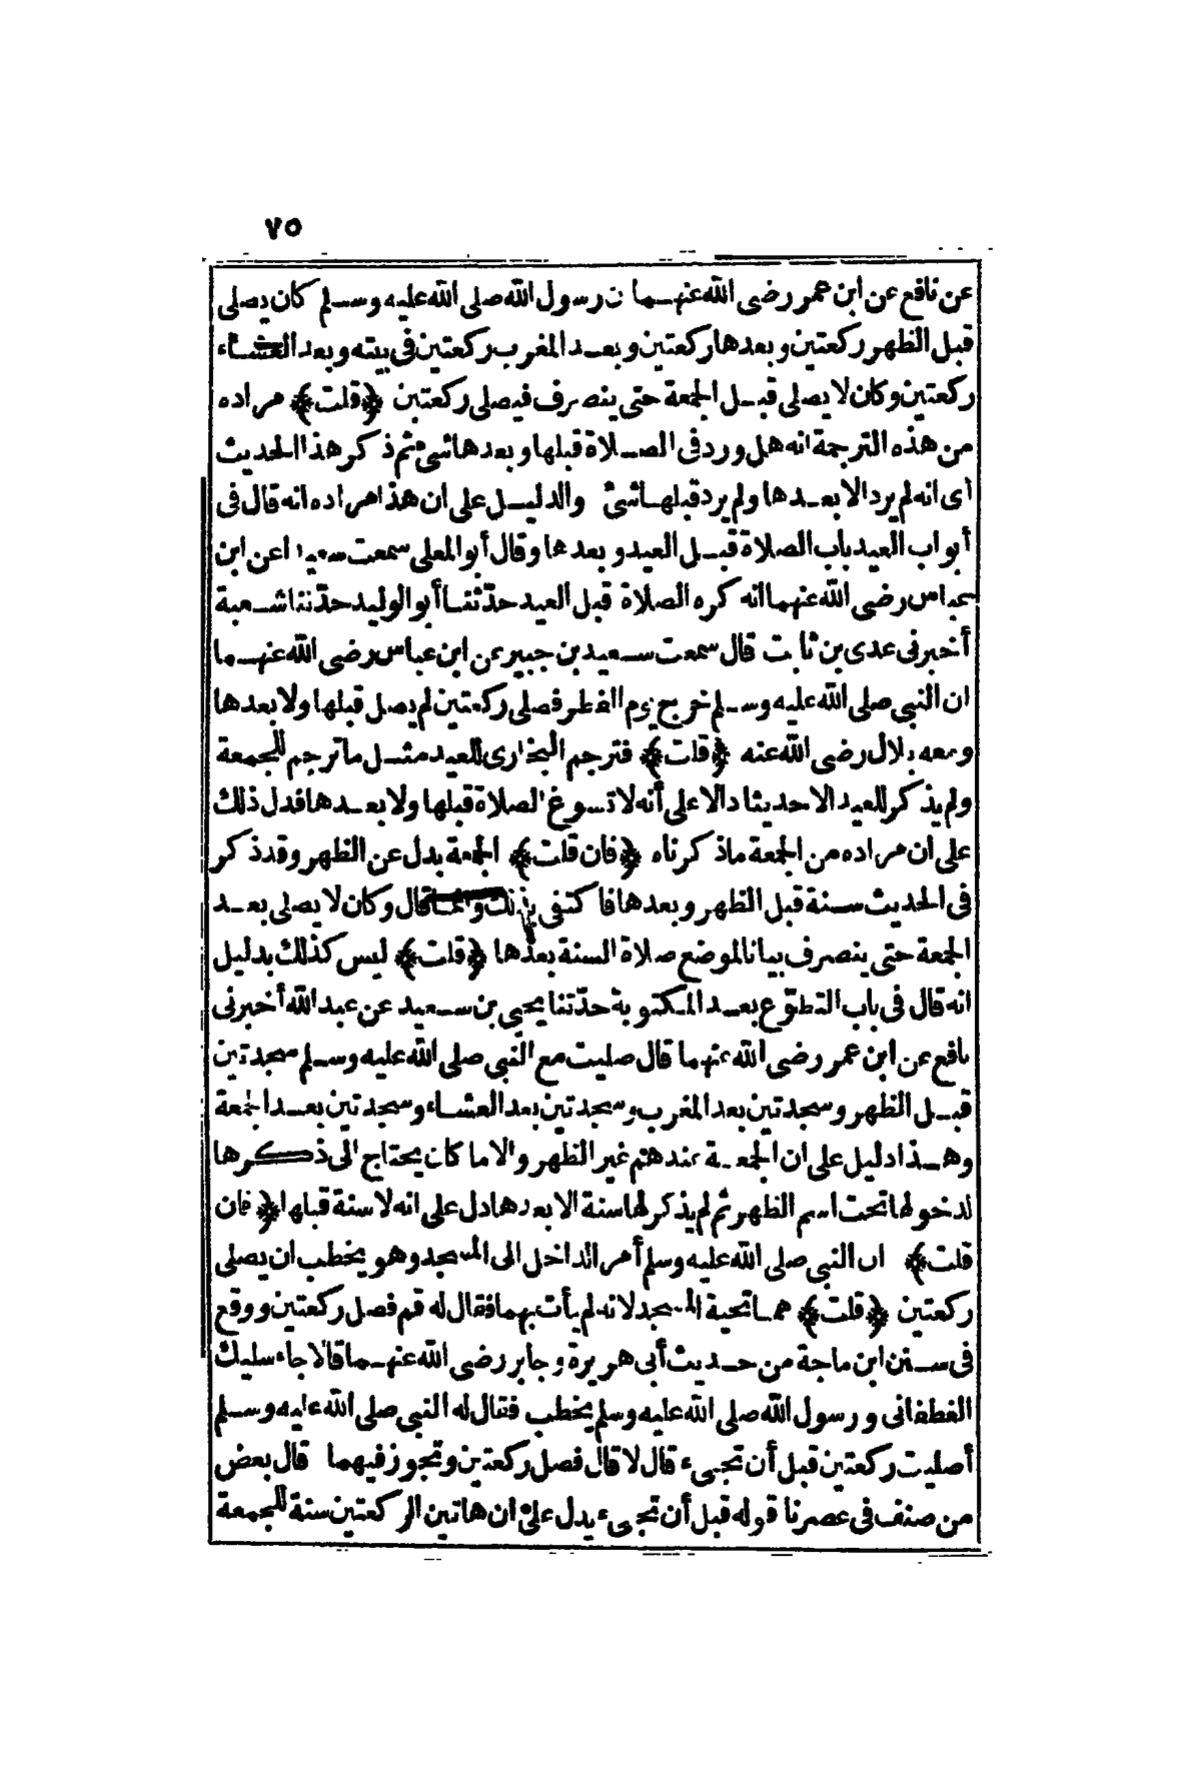 ٧٥
عن نافع عن ابن عمر رضى الله عنهما ان رسول الله صلى الله عليه وسلم كان يصلى
قبل الظهر ركعتين وبعدها ركعتين وبعد المغرب ركعتين فى بيته وبعد العشاء
ركعتين وكان لا يصلى قبل الجمعة حتى ينصرف فيصلى ركعتين ﴿قلت﴾ مراده
من هذه الترجمة انه هل ورد فى الصلاة قبلها وبعدها شىء ثم ذكر هذا الحديث
أى انه لم يرد الا بعدها ولم يرد قبلها شئ والدليل على ان هذا مراده انه قال فى
أبواب العيد باب الصلاة قبل العيد وبعدها وقال أبو المعلى سمعت سعيدا عن ابن
عباس رضى الله عنهما انه كره الصلاة قبل العيد حدّثنا أبو الوليد حدّثنا شعبة
أخبرنى عدى بن ثابت قال سمعت سعيد بن جبير عن ابن عباس رضى الله عنهما
ان النبى صلى الله عليه وسلم خرج يوم الفطر فصلى ركعتين لم يصل قبلها ولا بعدها
ومعه بلال رضى الله عنه ﴿قلت﴾ فترجم البخارى للعيد مثل ما ترجم للجمعة
ولم يذكر للعيد الا حديثا دالا على أنه لا تسوغ الصلاة قبلها ولا بعدها فدل ذلك
على ان مراده من الجمعة ماذكرناه ﴿فان قلت﴾ الجمعة بدل عن الظهر وقد ذكر
فى الحديث سنة قبل الظهر وبعدها فاكتفى بذلك وانما قال وكان لا يصلى بعد
الجمعة حتى ينصرف بيانا لموضع صلاة السنة بعدها ﴿قلت﴾ ليس كذلك بدليل
انه قال فى باب التطوّع بعد المكتوبة حدّثنا يحيى بن سعيد عن عبد الله أخبرنى
نافع عن ابن عمر رضى الله عنهما قال صليت مع النبى صلى الله عليه وسلم سجدتين
قبل الظهر وسجدتين بعد المغرب وسجدتين بعد العشاء وسجدتين بعد الجمعة
وهذا دليل على ان الجمعة عندهم غير الظهر والا ما كان يحتاج الى ذكرها
لدخولها تحت اسم الظهر ثم لم يذكر لها سنة الا بعدها دل على انه لا سنة قبلها ﴿فان
قلت﴾ ان النبى صلى الله عليه وسلم أمر الداخل الى المسجد وهو يخطب ان يصلى
ركعتين ﴿قلت﴾ هما تحية المسجد لانه لم يأت بهما فقال له قم فصل ركعتين ووقع
فى سنن ابن ماجة من حديث أبى هريرة وجابر رضى الله عنهما قالا جاء سليك
الغطفانى ورسول الله صلى الله عليه وسلم يخطب فقال له النبى صلى الله عليه وسلم
أصليت ركعتين قبل أن تجىء قال لا قال فصل ركعتين وتجوز فيهما قال بعض
من صنف فى عصرنا قوله قبل أن تجىء يدل على ان هاتين الركعتين سنة للجمعة